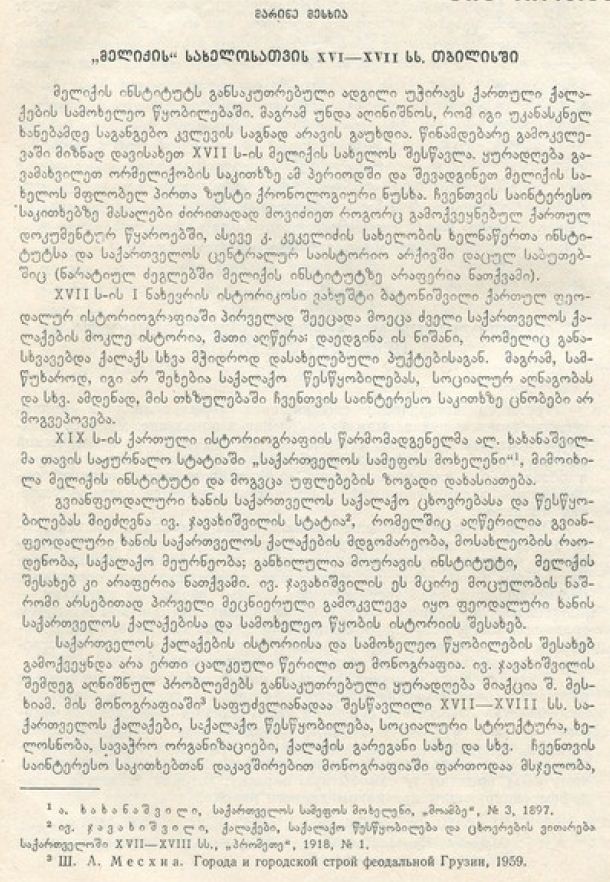 მარინე მესხია
„მელიქის“ სახელოსათვის XVI—XVII სს. თბილისში
მელიქის ინსტიტუტს განსაკუთრებული ადგილი უჭირავს ქართული ქალა-
ქების სამოხელეო წყობილებაში. მაგრამ უნდა აღინიშნოს, რომ იგი უკანასკნელ
ხანებამდე საგანგებო კვლევის საგნად არავის გაუხდია. წინამდებარე გამოკვლე-
ვაში მიზნად დავისახეთ XVII ს-ის მელიქის სახელოს შესწავლა. ყურადღება გა-
ვამახვილეთ ორმელიქობის საკითხზე ამ პერიოდში და შევადგინეთ მელიქის სა-
ხელოს მფლობელ პირთა ზუსტი ქრონოლოგიური ნუსხა. ჩვენთვის საინტერესო
საკითხებზე მასალები ძირითადად მოვიძიეთ როგორც გამოქვეყნებულ ქართულ
დოკუმენტურ წყაროებში, ასევე კ. კეკელიძის სახელობის ხელნაწერთა ინსტი-
ტუტსა და საქართველოს ცენტრალურ საისტორიო არქივში დაცულ საბუთებ-
შიც (ნარატიულ ძეგლებში მელიქის ინსტიტუტზე არაფერია ნათქვამი).
XVII ს-ის I ნახევრის ისტორიკოსი ვახუშტი ბატონიშვილი ქართულ ფეო-
დალურ ისტორიოგრაფიაში პირველად შეეცადა მოეცა ძველი საქართველოს ქა-
ლაქების მოკლე ისტორია, მათი აღწერა; დაედგინა ის ნიშანი, რომელიც განა-
სხვავებდა ქალაქს სხვა მჭიდროდ დასახელებული პუქტებისაგან. მაგრამ, სამ-
წუხაროდ, იგი არ შეხებია საქალაქო წესწყობილებას, სოციალურ აღნაგობას
და სხვ. ამდენად, მის თხზულებაში ჩვენთვის საინტერესო საკითხზე ცნობები არ
მოგვეპოვება.
XIX ს-ის ქართული ისტორიოგრაფიის წარმომადგენელმა ალ. ხახანაშვილ-
მა თავის საჟურნალო სტატიაში „საქართველოს სამეფოს მოხელენი“¹, მიმოიხი-
ლა მელიქის ინსტიტუტი და მოგვცა უფლებების ზოგადი დახასიათება.
გვიანფეოდალური ხანის საქართველოს საქალაქო ცხოვრებასა და წესწყო-
ბილებას მიეძღვნა ივ. ჯავახიშვილის სტატია², რომელშიც აღწერილია გვიან-
ფეოდალური ხანის საქართველოს ქალაქების მდგომარეობა, მოსახლეობის რაო-
დენობა, საქალაქო მეურნეობა; განხილულია მოურავის ინსტიტუტი, მელიქის
შესახებ კი არაფერია ნათქვამი. ივ. ჯავახიშვილის ეს მცირე მოცულობის ნაშ-
რომი არსებითად პირველი მეცნიერული გამოკვლევა იყო ფეოდალური ხანის
საქართველოს ქალაქებისა და სამოხელეო წყობის ისტორიის შესახებ.
საქართველოს ქალაქების ისტორიისა და სამოხელეო წყობილების შესახებ
გამოქვეყნდა არა ერთი ცალკეული წერილი თუ მონოგრაფია. ივ. ჯავახიშვილის
შემდეგ აღნიშნულ პრობლემებს განსაკუთრებული ყურადღება მიაქცია შ. მეს-
ხიამ. მის მონოგრაფიაში³ საფუძვლიანადაა შესწავლილი XVII—XVIII სს. სა-
ქართველოს ქალაქები, საქალაქო წესწყობილება, სოციალური სტრუქტურა, ხე-
ლოსნობა, სავაჭრო ორგანიზაციები, ქალაქის გარეგანი სახე და სხვ. ჩვენთვის
საინტერესო საკითხებთან დაკავშირებით მონოგრაფიაში ფართოდაა მსჯელობა,
¹ ა. ხახანაშვილი, საქართველოს სამეფოს მოხელენი, „მოამბე“, № 3, 1897.
² ივ. ჯავახიშვილი, ქალაქები, საქალაქო წესწყობილება და ცხოვრების ვითარება
საქართველოში XVII—XVIII სს., „პრომეთე“, 1918, № 1.
³ Ш. А. Месхиа. Города и городской строй феодальной Грузии, 1959.